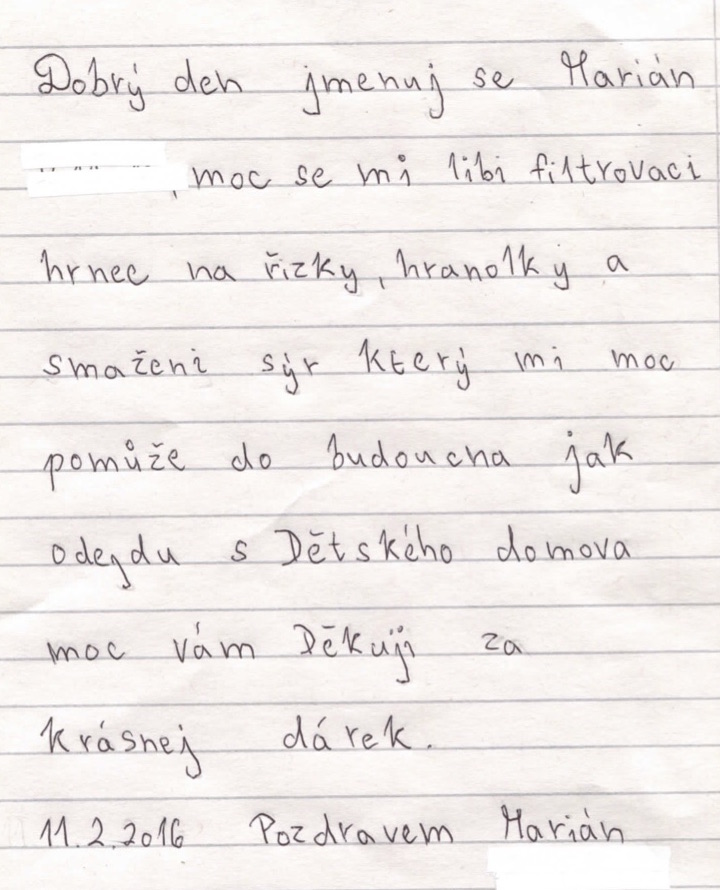 Dobrý den jmenuj se Marián
, moc se mi libi filtrovaci
hrnec na řizky, hranolky a
smaženi sýr který mi moc
pomůže do budoucna jak
odejdu s Dětského domova
moc vám Děkuji za
krásnej dárek.
11.2.2016 Pozdravem Marián